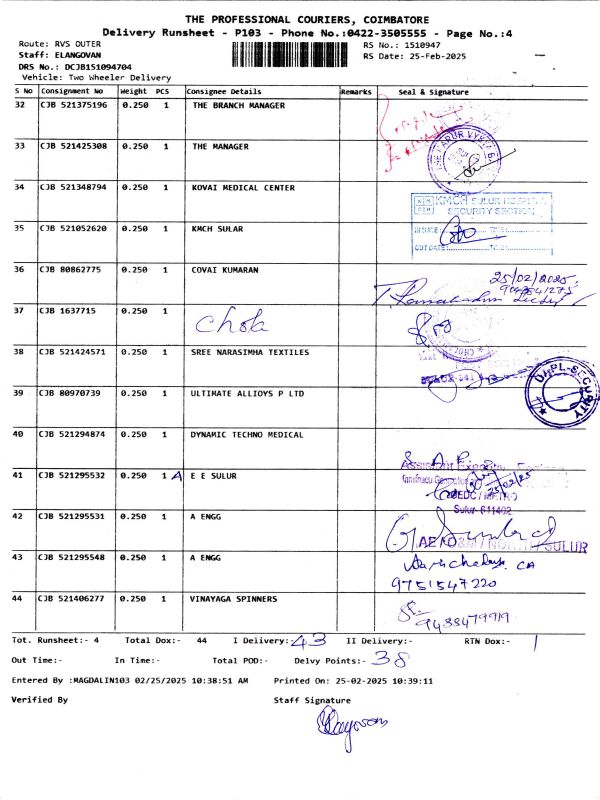 THE PROFESSIONAL COURIERS, COIMBATORE
Delivery Runsheet - P103 - Phone No.:0422-3505555 - Page No.:4
Route: RVS OUTER RS No.: 1510947
Staff: ELANGOVAN RS Date: 25-Feb-2025
DRS No.: DCJB151094704
Vehicle: Two Wheeler Delivery
S No Consignment No Weight PCS Consignee Details Remarks Seal & Signature
32 CJB 521375196 0.250 1 THE BRANCH MANAGER
33 CJB 521425308 0.250 1 THE MANAGER
34 CJB 521348794 0.250 1 KOVAI MEDICAL CENTER
KMCH SULUR HOSPITAL
SECURITY SECTION
35 CJB 521052620 0.250 1 KMCH SULAR
IN DATE: TIME:
OUT DATE: TIME:
36 CJB 80862775 0.250 1 COVAI KUMARAN
25/02/2025
37 CJB 1637715 0.250 1 Chola
38 CJB 521424571 0.250 1 SREE NARASIMHA TEXTILES
39 CJB 80970739 0.250 1 ULTIMATE ALLIOYS P LTD
SECURITY
40 CJB 521294874 0.250 1 DYNAMIC TECHNO MEDICAL
41 CJB 521295532 0.250 1 A E E SULUR
25/02/25
Sulur-641402
42 CJB 521295531 0.250 1 A ENGG
AE / O&M / NORTH / SULUR
43 CJB 521295548 0.250 1 A ENGG
9751547220
44 CJB 521406277 0.250 1 VINAYAGA SPINNERS
9488479919
Tot. Runsheet:- 4 Total Dox:- 44 I Delivery:- 43 II Delivery:- RTN Dox:- 1
Out Time:- In Time:- Total POD:- Delvy Points:- 38
Entered By :MAGDALIN103 02/25/2025 10:38:51 AM Printed On: 25-02-2025 10:39:11
Verified By Staff Signature